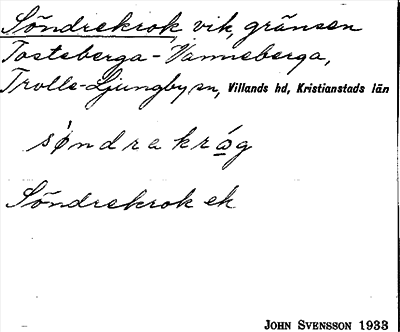 Söndrekrok, vik, gränsen
Tosteberga-Vanneberga,
Trolle-Ljungby sn, Villands hd, Kristianstads län
søndrakróg
Söndrekrok ek
JOHN SVENSSON 1933